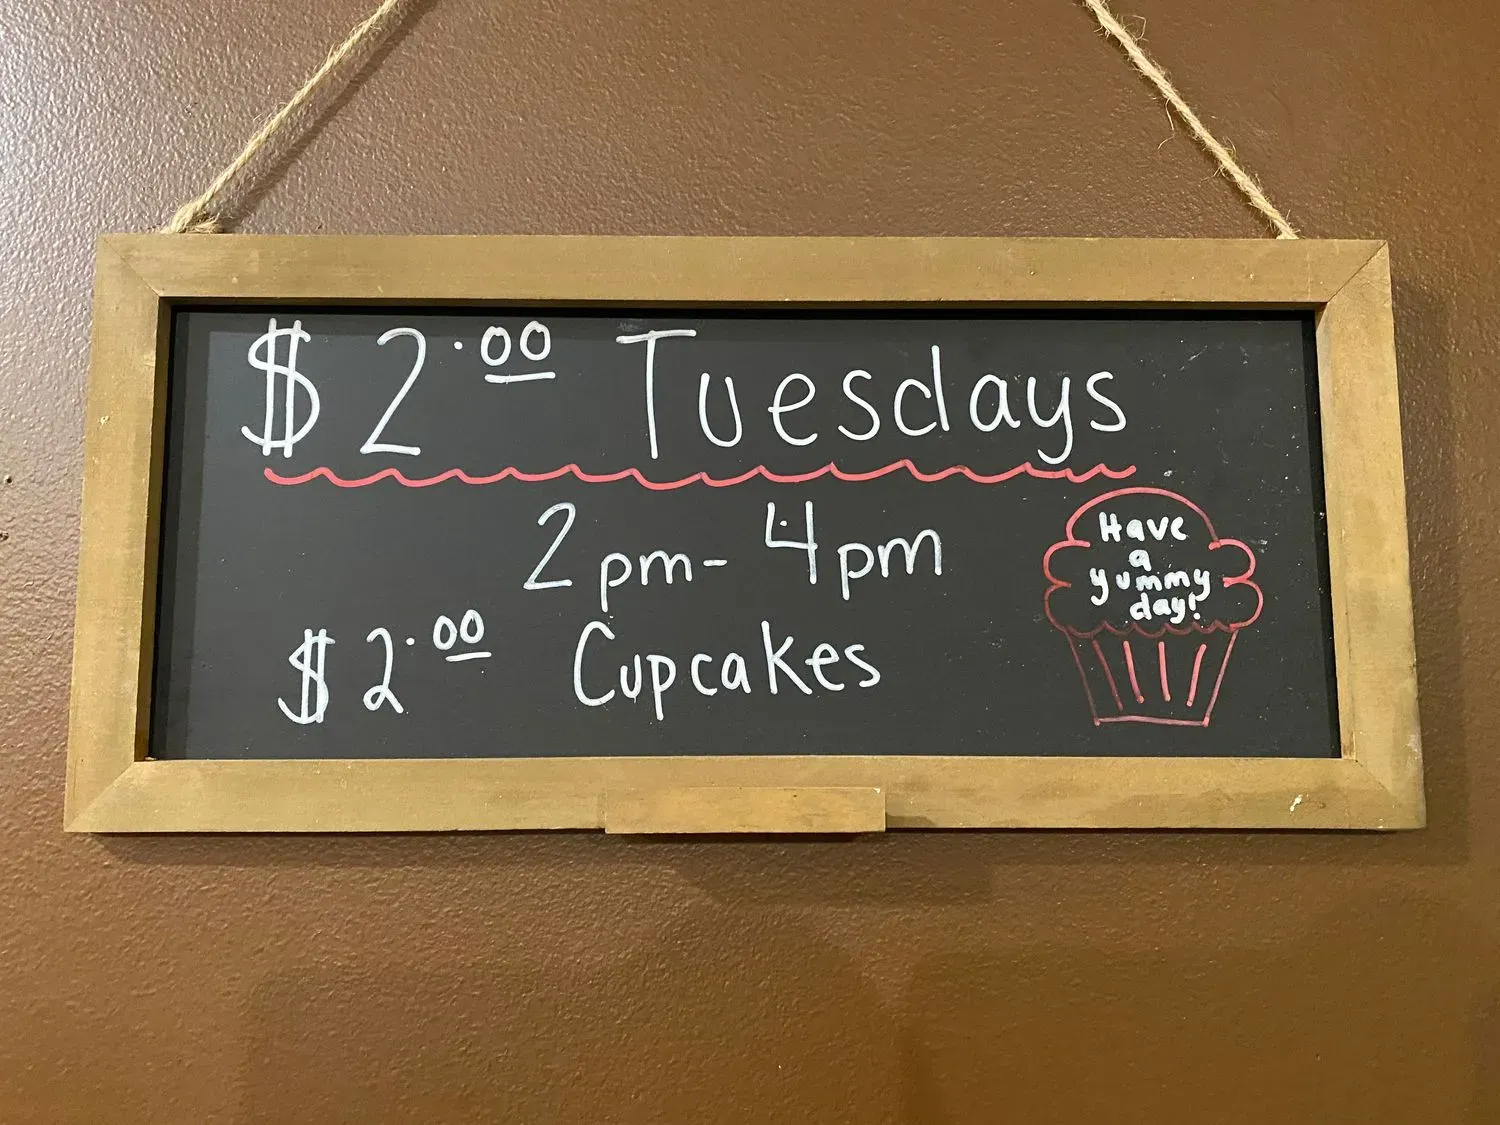 $2.00 Tuesdays
2pm-4pm
$2.00 Cupcakes
Have
a
yummy
day!